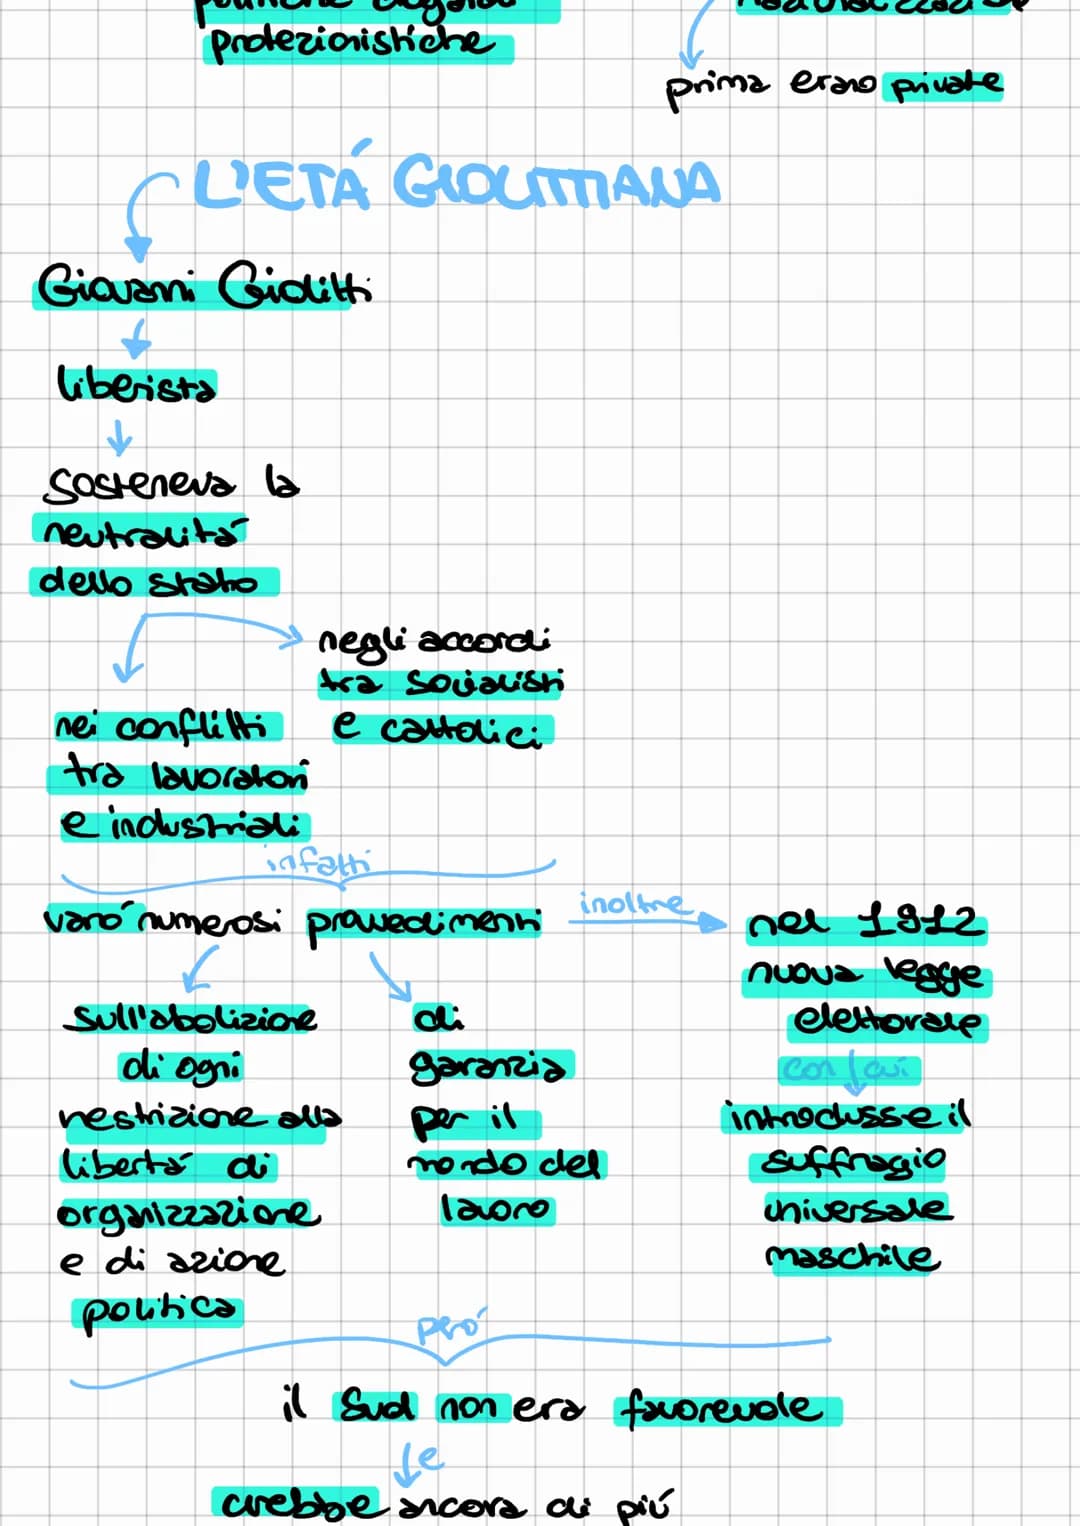 politiche doganali
protezionistiche
nazionalizzazione
prima erano private
L'ETÁ GIOLITTIANA
Giovanni Giolitti
liberista
sosteneva la
neutralitá
dello stato
negli accordi
tra socialisti
e cattolici
nei conflitti
tra lavoratori
e industriali
infatti
varó numerosi provvedimenti
inoltre
nel 1912
nuova legge
elettorale
con cui
introdusse il
suffragio
universale
maschile
sull'abolizione
di ogni
restrizione alla
libertá di
organizzazione
e di azione
politica
di
garanzia
per il
mondo del
lavoro
peró
il Sud non era favorevole
e
crebbe ancora di piú